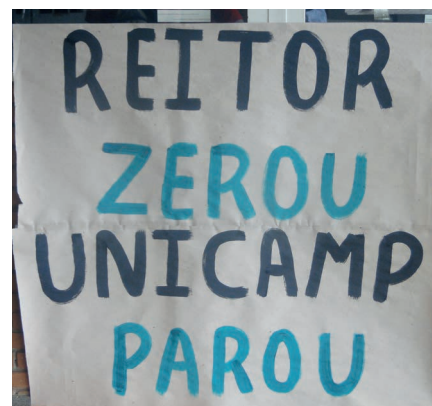 REITOR
ZEROU
UNICAMP
PAROU